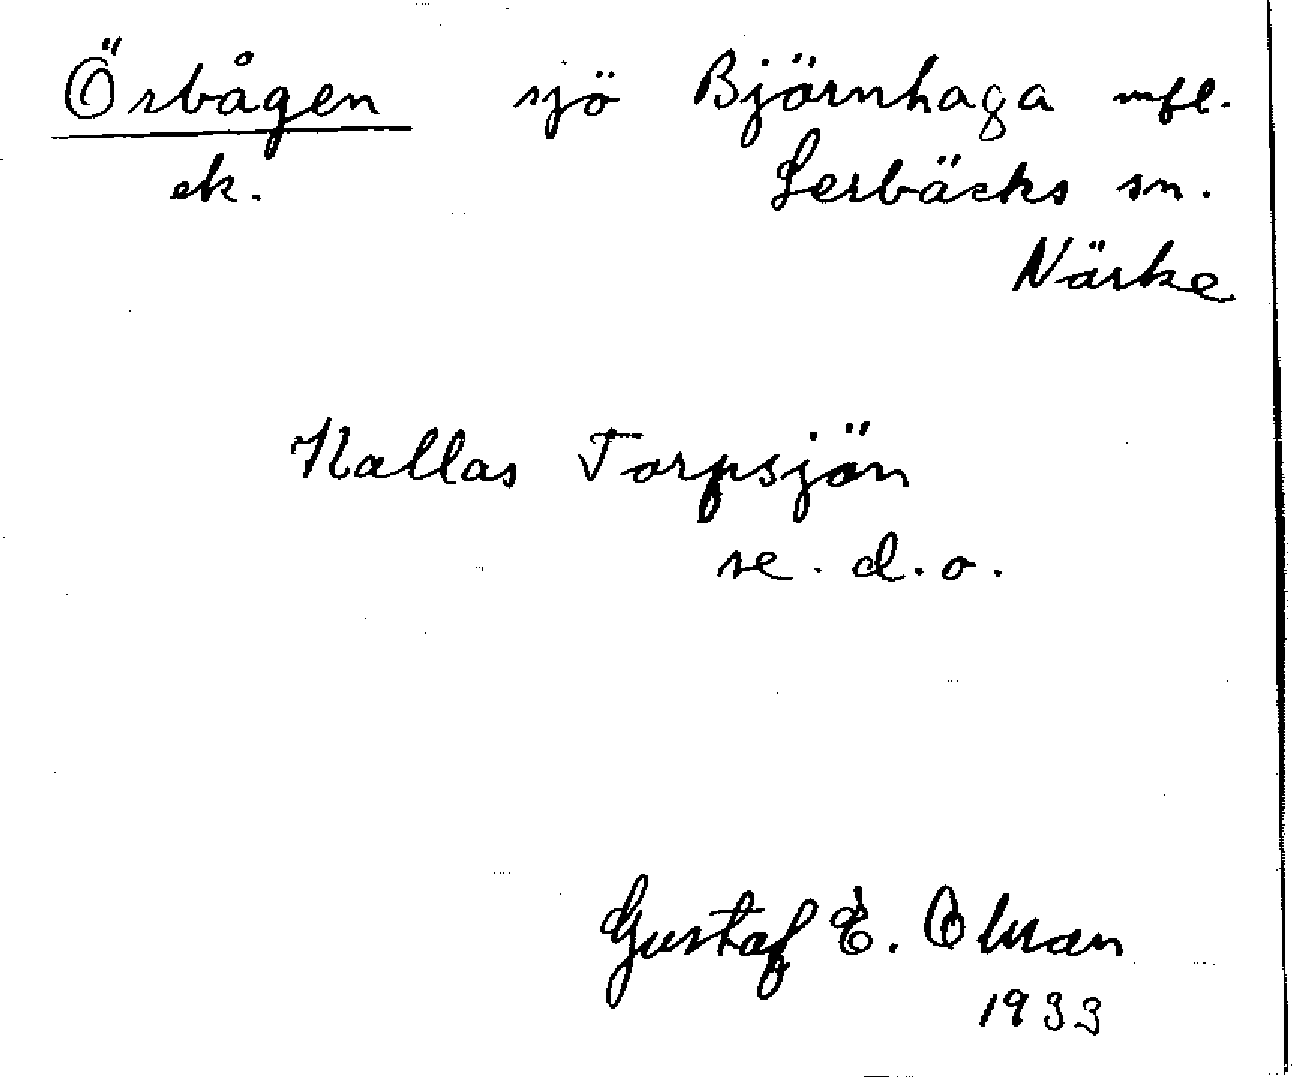 Örbågen sjö Björnhaga mfl.
ek. Lerbäcks sn.
Närke
Kallas Torpsjön
se. d.o.
Gustaf E. Olman
1933